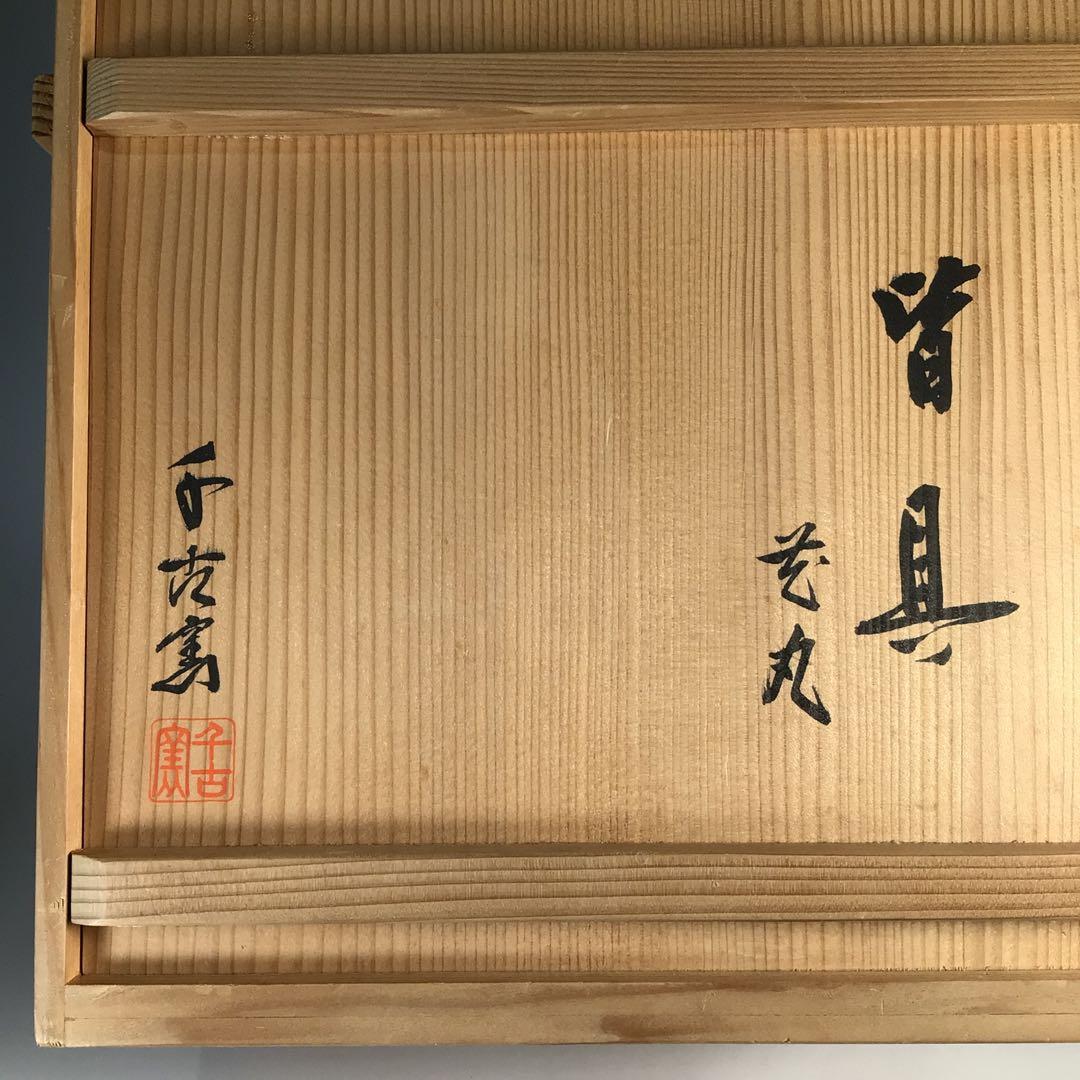 皆具
花丸
千古窯
千古窯